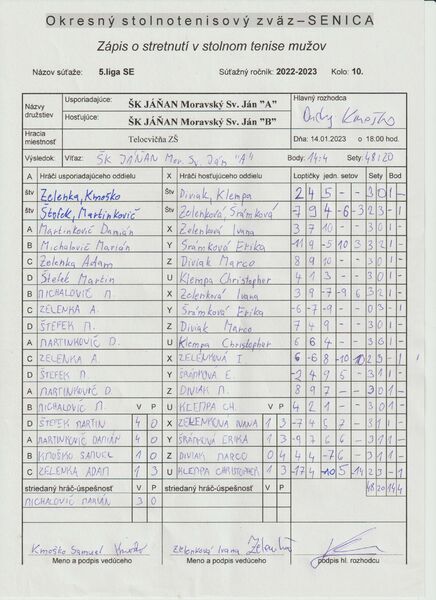 Okresný stolnotenisový zväz–SENICA
Zápis o stretnutí v stolnom tenise mužov
Názov súťaže: 5.liga SE Súťažný ročník: 2022-2023 Kolo: 10.
Názvy družstiev Usporiadajúce: ŠK JÁŇAN Moravský Sv. Ján "A" Hlavný rozhodca
Hosťujúce: ŠK JÁŇAN Moravský Sv. Ján "B" Kmoško
Hracia miestnosť Telocvičňa ZŠ Dňa: 14.01.2023 o 18.00 hod.
Výsledok: Víťaz: ŠK JÁŇAN Mor. Sv. Ján "A" Body: 14:4 Sety: 48:20
A Hráči usporiadajúceho oddielu X Hráči hosťujúceho oddielu Loptičky jedn. setov Sety Bod
štv Zelenka, Kmoško Štv Diviak, Klempa 2 4 5 - - 3 0 1 -
štv Štefek, Martinkovič Štv Zelenková, Šrámková 7 9 4 -6 -3 2 3 - 1
A Martinkovič Damián X Zelenková Ivana 3 7 10 - - 3 0 1 -
B Michalovič Marián Y Šrámková Erika -11 9 -5 10 3 3 2 1 -
C Zelenka Adam Z Diviak Marco 8 9 10 - - 3 0 1 -
D Štefek Martin U Klempa Christopher 4 1 3 - - 3 0 1 -
B MICHALOVIČ M X Zelenková Ivana 3 9 -7 -9 6 3 2 1 -
C ZELENKA A. Y Šrámková Erika -6 -7 -9 - - 0 3 - 1
D ŠTEFEK M. Z Diviak Marco 7 4 9 - - 3 0 1 -
A MARTINKOVIČ D. U Klempa Christopher 6 6 4 - - 3 0 1 -
C ZELENKA A. X ZELENKOVÁ I 6 -6 8 -10 -10 2 3 - 1
D ŠTEFEK M. Y ŠRÁMKOVÁ E. -2 4 9 5 - 3 1 1 -
A MARTINKOVIČ D Z DIVIAK M. 8 9 7 - - 3 0 1 -
B MICHALOVIČ M. V P U KLEMPA CH. V P 4 2 1 - - 3 0 1 -
D ŠTEFEK MARTIN 4 0 X ZELENKOVÁ IVANA 1 3 -7 4 5 7 - 3 1 1 -
A MARTINKOVIČ DAMIÁN 4 0 Y ŠRÁMKOVÁ ERIKA 1 3 -9 7 6 6 - 3 1 1 -
B KMOŠKO SAMUEL 1 0 Z DIVIAK MARCO 0 4 4 -7 6 - 3 1 1 -
C ZELENKA ADAM 1 3 U KLEMPA CHRISTOPHER 1 3 -17 4 -10 5 -14 2 3 - 1
striedaný hráč-úspešnosť V P striedaný hráč-úspešnosť V P 48 20 14 4
MICHALOVIČ MARIÁN 3 0
Kmoško Samuel Zelenková Ivana
Meno a podpis vedúceho Meno a podpis vedúceho podpis hl. rozhodcu